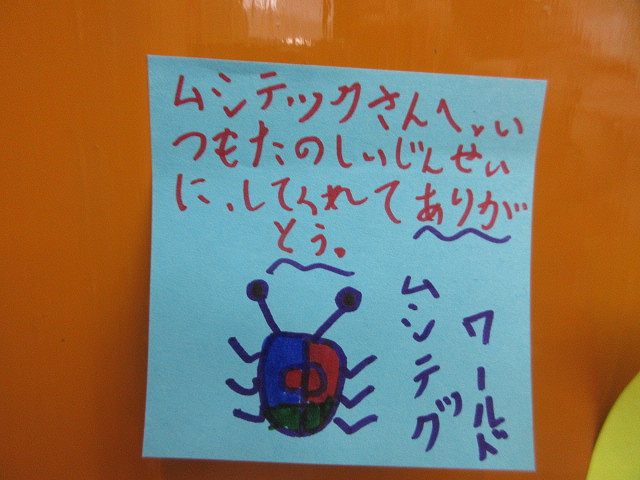 ムシテックさんへ、い
つもたのしいじんせい
に、してくれてありが
とう。
ムシテッグ
ワールド